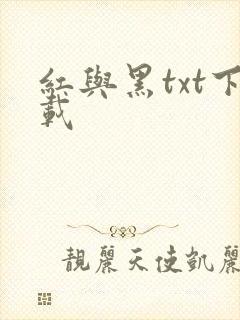 紅與黑txt下
載
靚麗天使凱麗